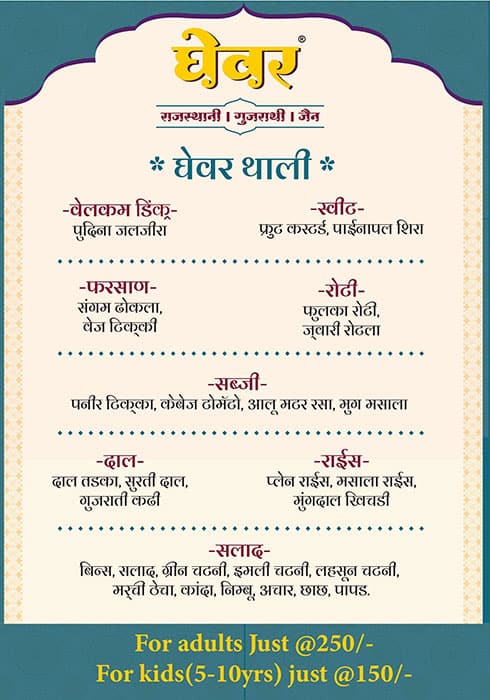 घेवर®
राजस्थानी । गुजराथी । जैन
* घेवर थाली *
-वेलकम डिंक्र-
पुदिना जलजीरा
-स्वीट-
फ्रुट कस्टर्ड, पाईनापल शिरा
-फरसाण-
संगम ढोकला,
वेज टिक्की
-रोटी-
फुलका रोटी,
ज्वारी रोटला
-सब्जी-
पनीर टिक्का, केबेज टोमॅटो, आलू मटर रसा, मुग मसाला
-दाल-
दाल तडका, सुरती दाल,
गुजराती कढी
-राईस-
प्लेन राईस, मसाला राईस,
मुंगदाल खिचडी
-सलाद-
बिन्स, सलाद, ग्रीन चटनी, इमली चटनी, लहसून चटनी,
मर्ची ठेचा, कांदा, निम्बू, अचार, छाछ, पापड.
For adults Just @250/-
For kids(5-10yrs) just @150/-